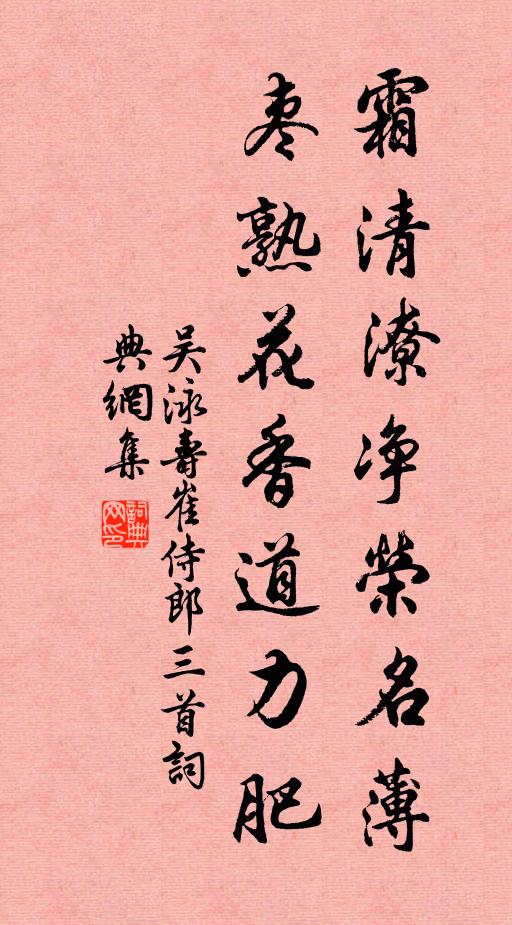 霜清潦净榮名薄
枣熟花香道力肥
吴泳壽崔侍郎三首詞
典網集
詞典网印